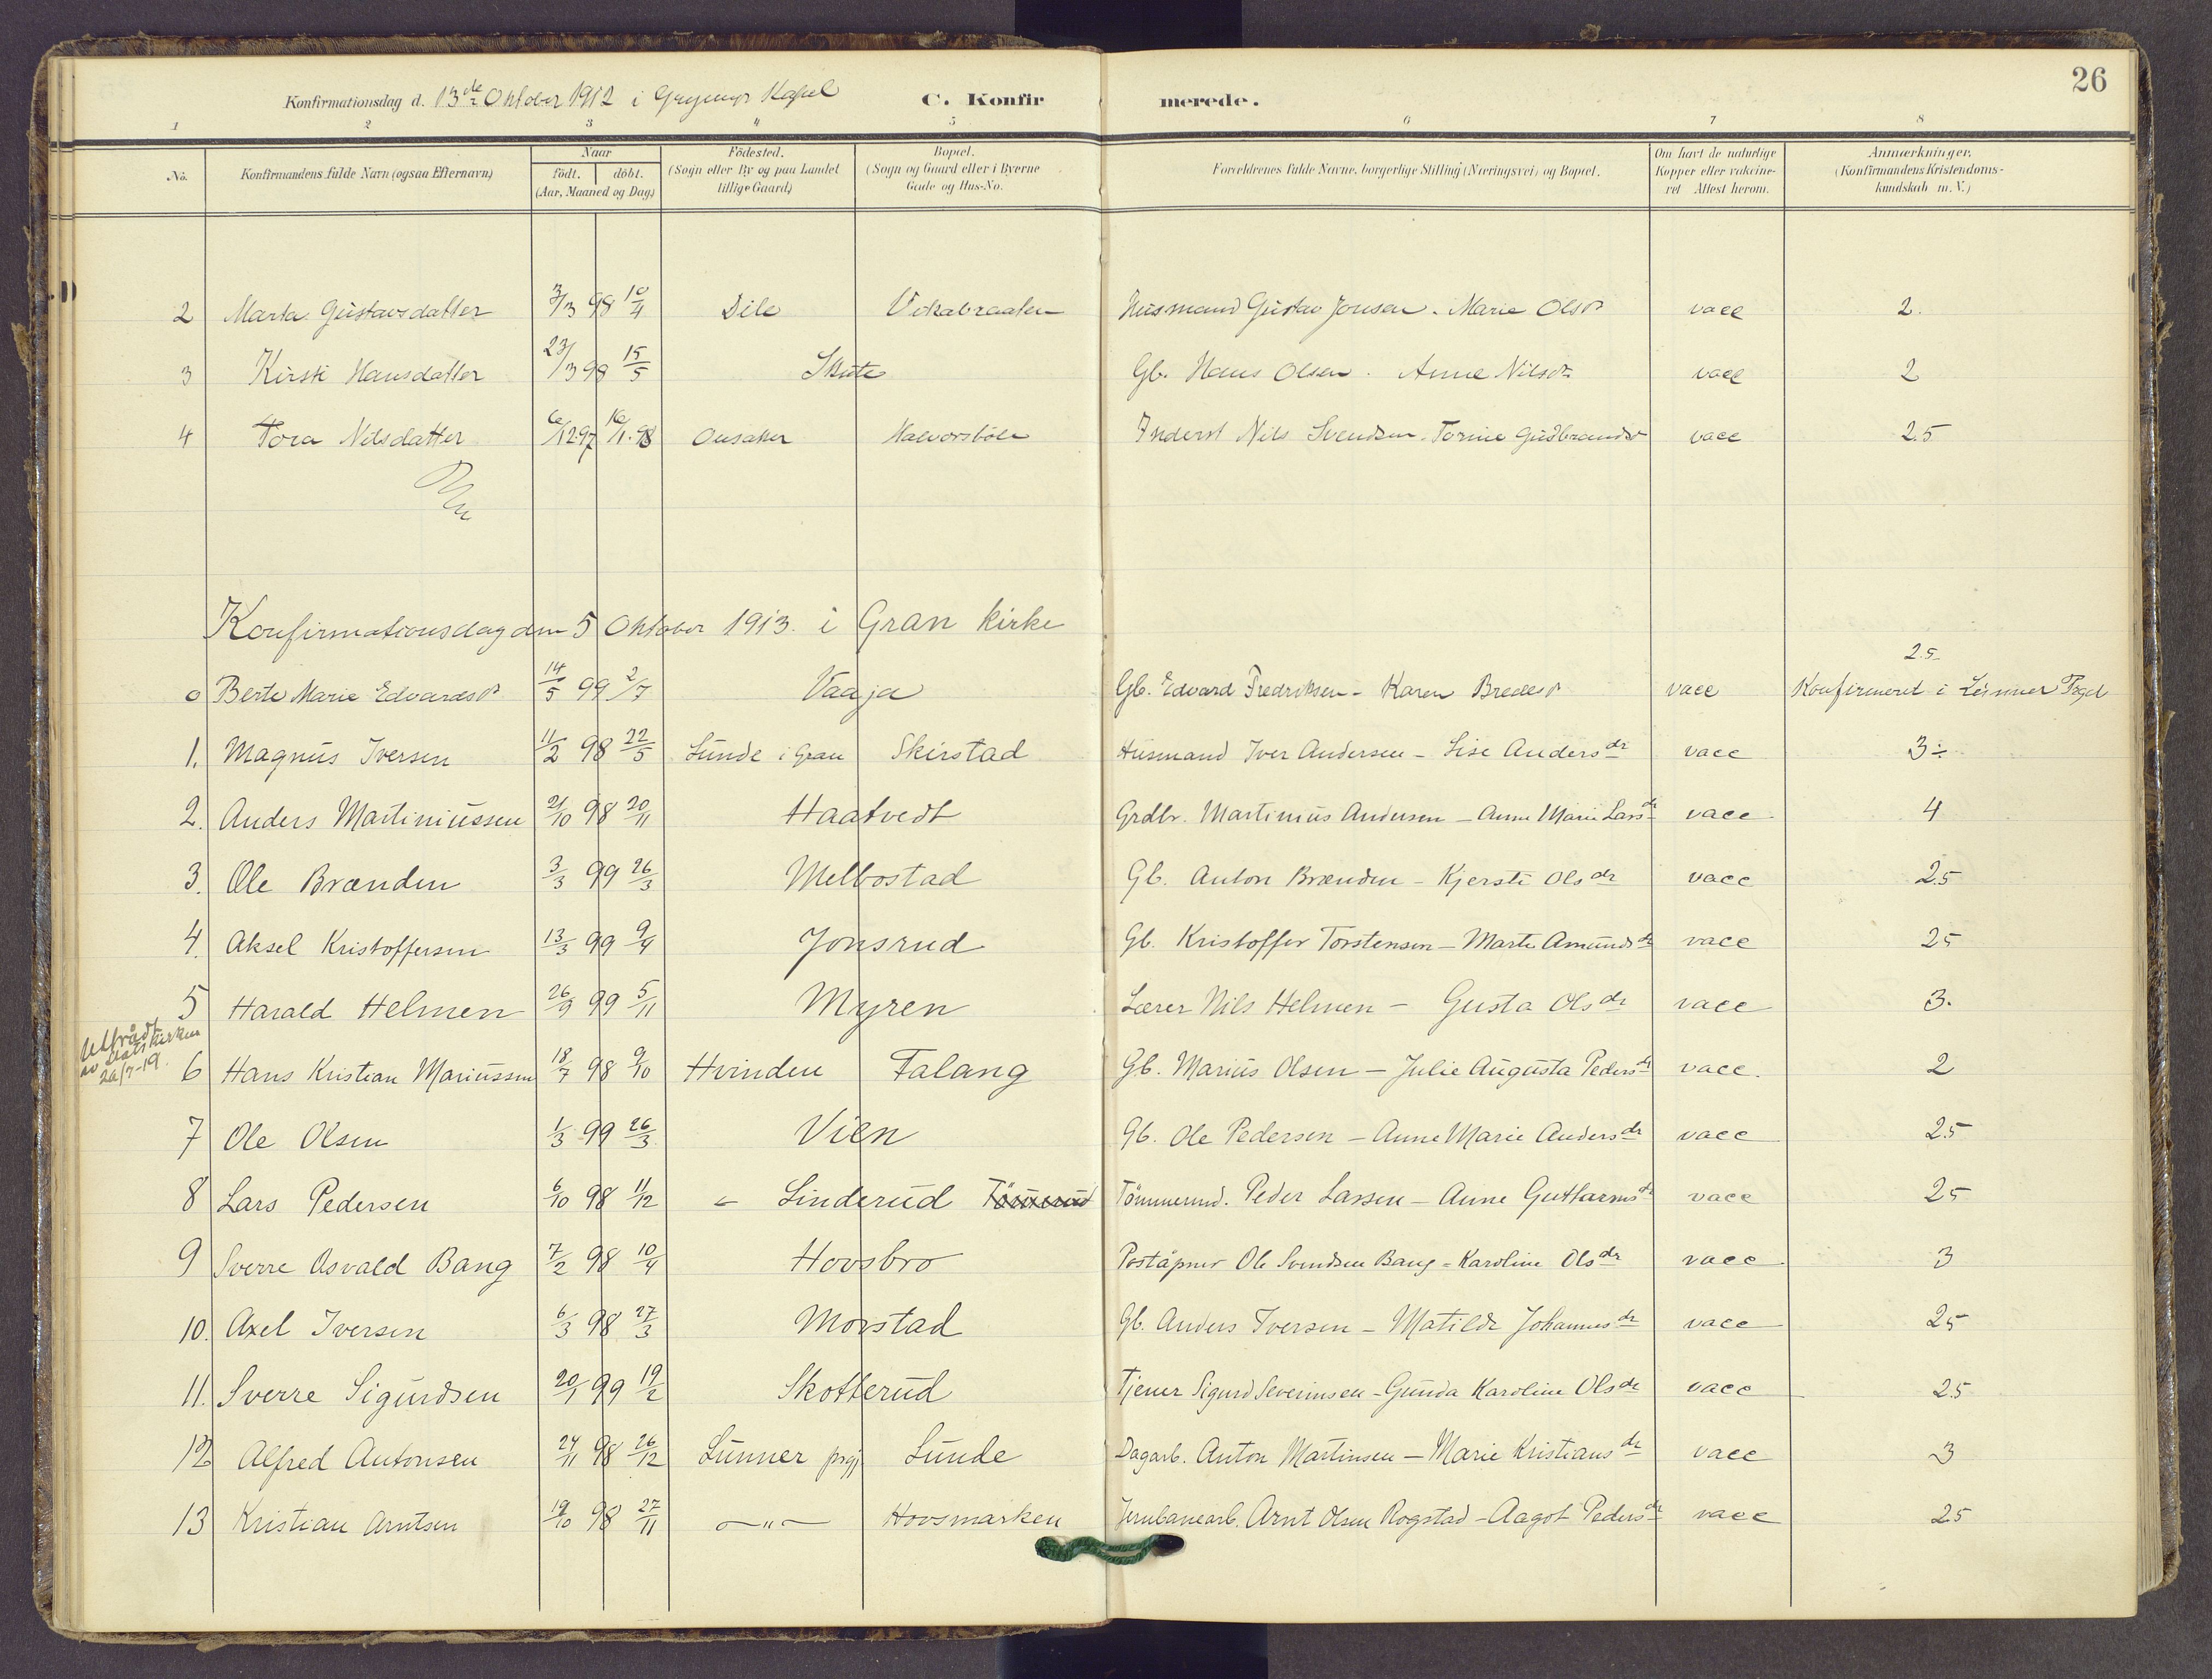 26
Konfirmationsdag d. 13de Oktober 1912 i Grymyr Kapel C. Konfirmerede.
1 2 3 4 5 6 7 8
No. Konfirmandens fulde Navn (ogsaa Efternavn) Naar født. døbt. (Aar, Maaned og Dag) Födested. (Sogn eller By og paa Landet tillige Gaard) Bopæl. (Sogn og Gaard eller i Byerne Gade og Hus-No. Forældrenes fulde Navne, borgerlige Stilling (Næringsvei) og Bopæl. Om havt de naturlige Kopper eller vakcineret Attest herom. Anmærkninger. (Konfirmandens Kristendomskundskab m. V.)
2 Marta Gustavsdatter 3/3 98 10/4 Dile Vikabraaten Husmand Gustav Jonsen. Marie Olsd vacc 2.
3 Kirsti Hansdatter 23/3 98 15/5 Skute Gb. Hans Olsen. Anne Nilsdr vacc 2
4 Tora Nilsdatter 6/12 97 16/1 98 Onsaker Halvorsböle Inderst Nils Svendsen. Torine Gudbrandsd vacc 2.5
Konfirmationsdag den 5 Oktober 1913. i Gran Kirke
2.5
0 Berte Marie Edvardsd 14/5 99 2/7 Vaaja Gb. Edvard Fredriksen - Karen Bredesd vacc Konfirmeret i Lunner Pgd
1. Magnus Iversen 11/2 98 22/5 Lunde i Gran Skirstad Husmand Iver Andersen - Lise Andersdr vacc 3÷
2. Anders Martiniussen 21/10 98 20/11 Haatvedt Grdbr. Martinius Andersen - Anne Marie Larsdr vacc 4
3. Ole Brænden 3/3 99 26/3 Melbostad Gb. Anton Brænden - Kjersti Olsdr vacc 2.5
4. Aksel Kristoffersen 13/3 99 9/4 Jonsrud Gb. Kristoffer Torstensen - Marte Amundsdr vacc 25
5 Harald Helmen 26/9 99 5/11 Myren Lærer Nils Helmen - Gusta Olsdr vacc 3.
Utträdt av statskirken 26/7-19.
6 Hans Kristian Mariussen 18/7 98 9/10 Hvinden Falang Gb. Marius Olsen - Julie Augusta Pedersdr vacc. 2
7 Ole Olsen 1/3 99 26/3 Vien Gb. Ole Pedersen - Anne Marie Andersdr vacc 2.5
8 Lars Pedersen 6/10 98 11/12 Linderud Tömmerud. Peder Larssen - Anne Guttormsdr vacc 25
9 Sverre Osvald Bang 7/2 98 10/4 Hovsbro Poståpner Ole Svendsen Bang - Karoline Olsdr vacc 3
10. Axel Iversen 6/3 98 27/3 Morstad Gb. Anders Iversen - Matilde Johannesdr vacc 25
11. Sverre Sigurdsen 20/1 99 19/2 Skotterud Tjener Sigurd Severinsen - Gunda Karoline Olsdr vacc 2.5
12 Alfred Antonsen 24/11 98 26/12 Lunner prgj Lunde Dagarb. Anton Martinsen - Marie Kristiansdr vacc 3
13 Kristian Arntsen 19/10 98 27/11 —"— Hovsmarken Jernbanearb. Arnt Olsen Rogstad - Aagot Pedersdr vacc 25